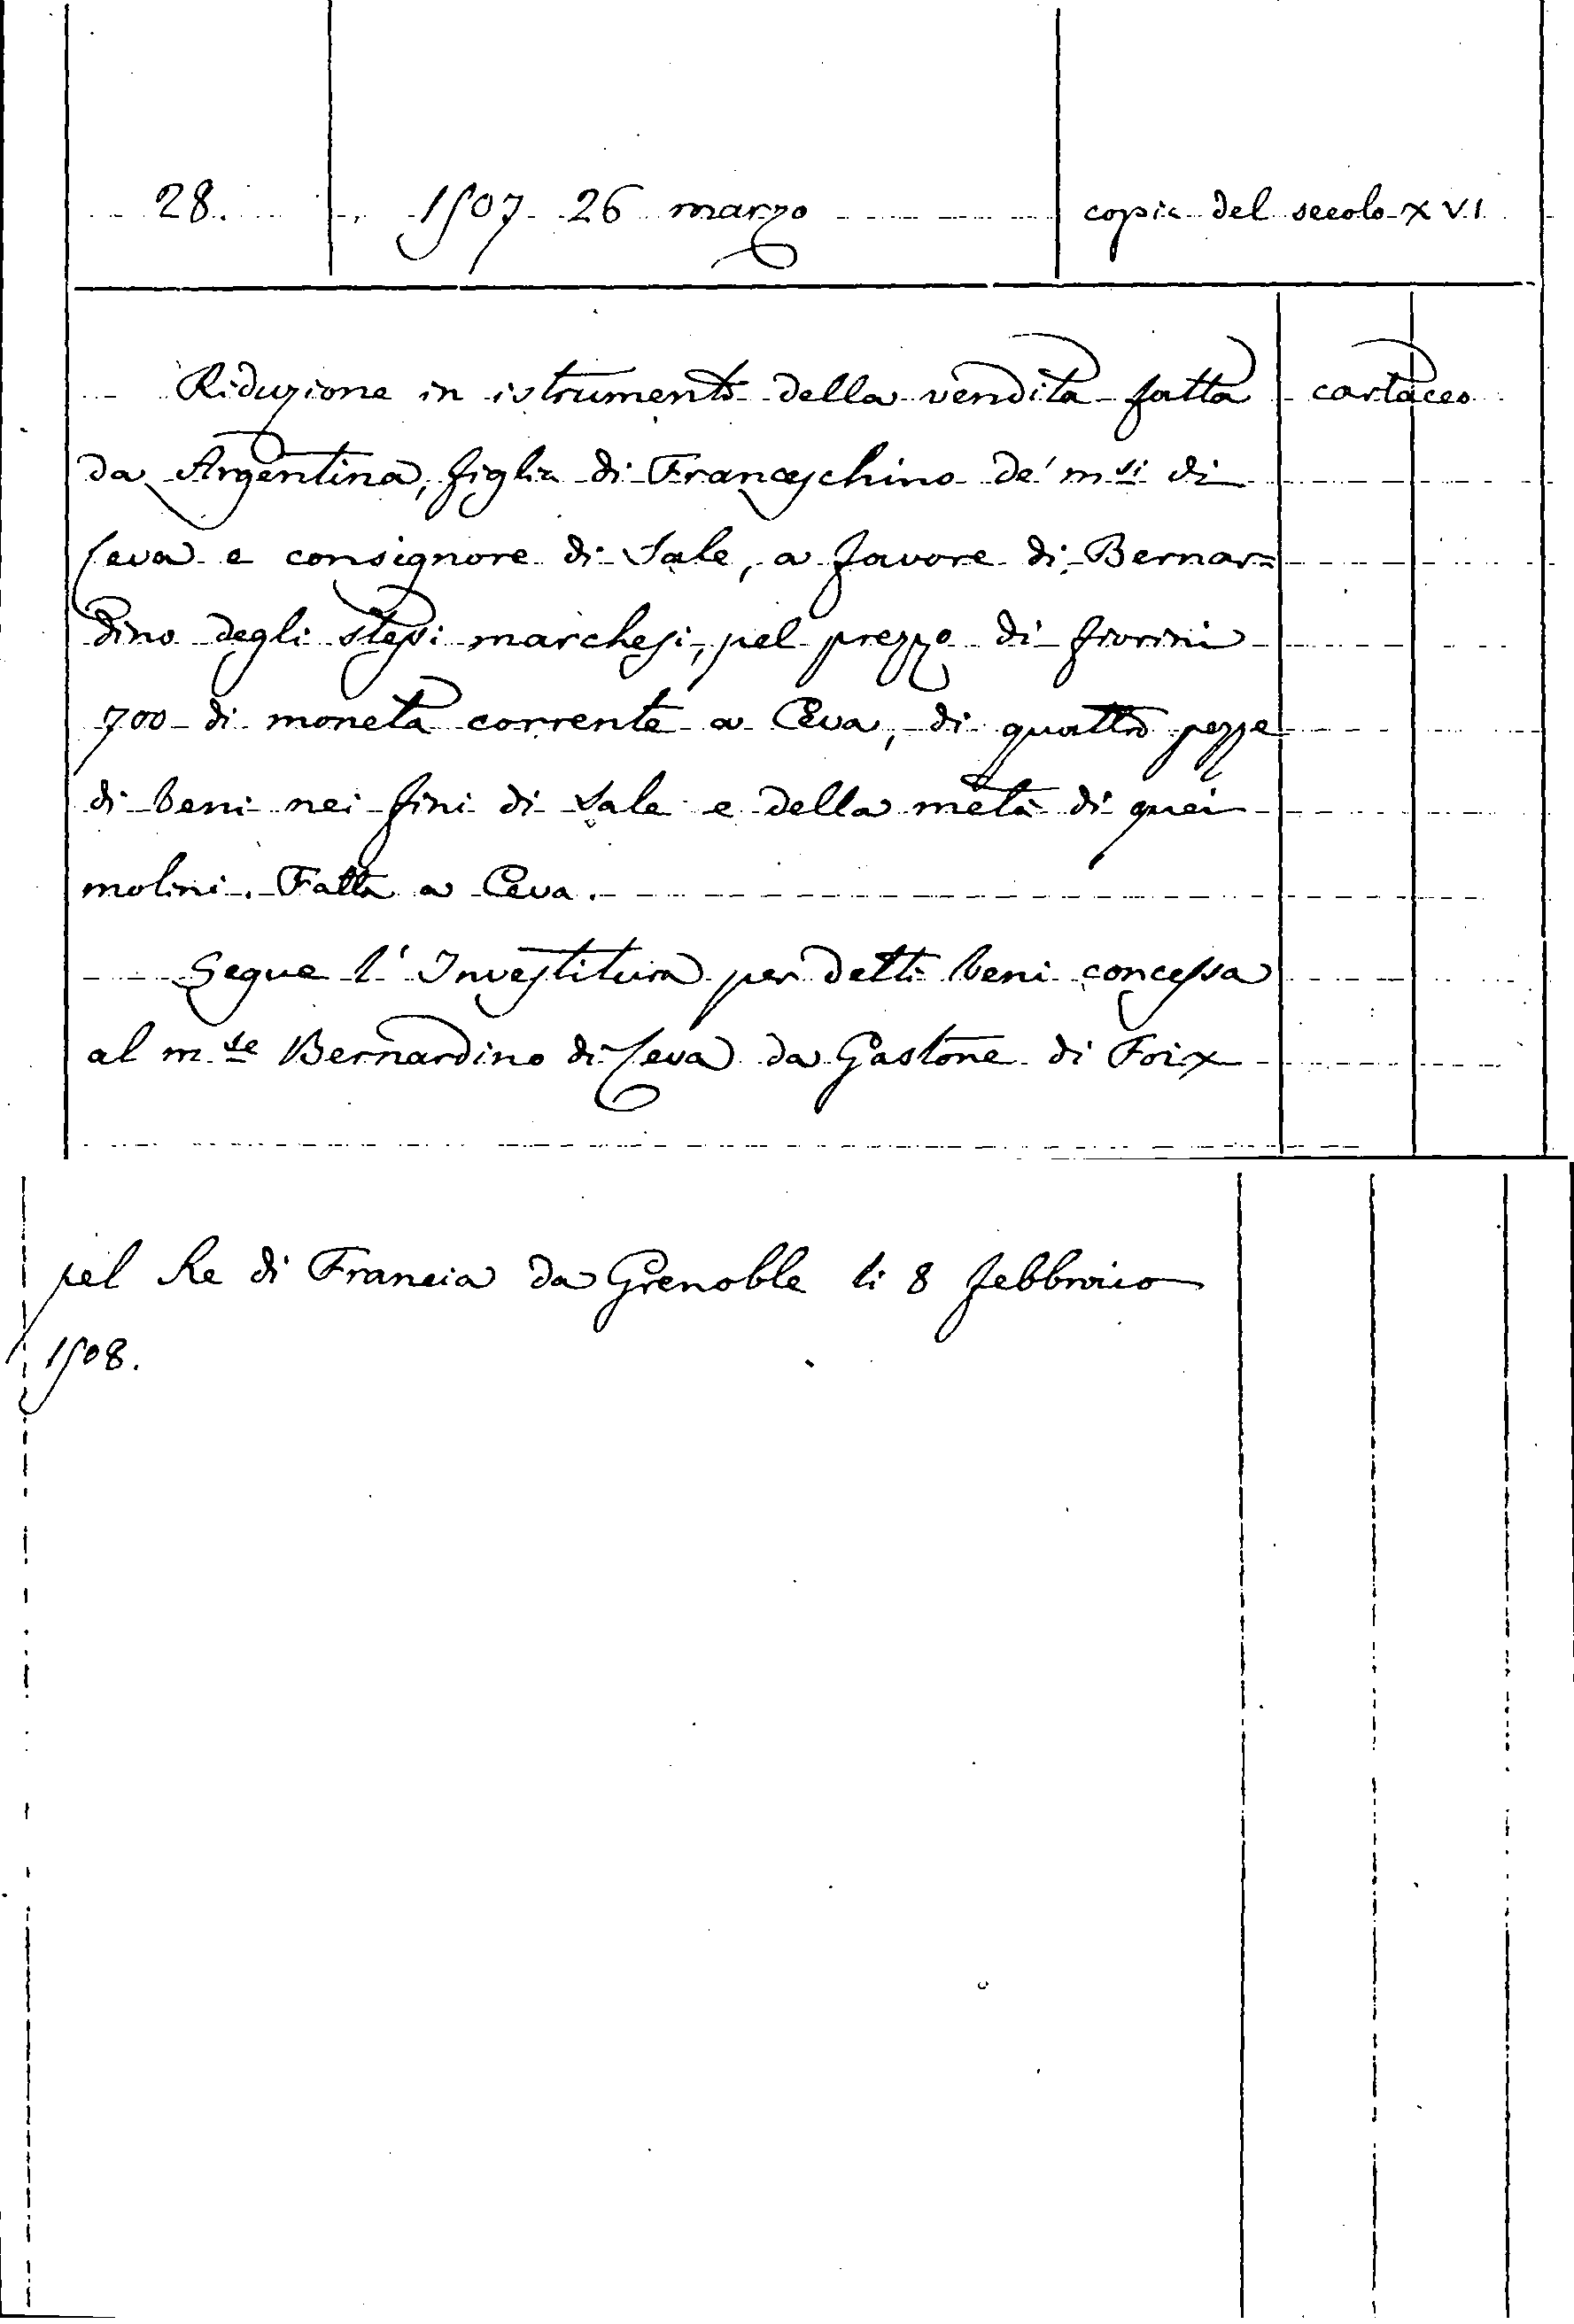 28. 1507 26 marzo copia del secolo XVI
Riduzione in istrumento della vendita fatta cartaceo
da Argentina, figlia di Franceschino de' m.si di
Ceva e consignore di Sale, a favore di Bernar=
dino degli stessi marchesi, pel prezzo di fiorini
700 di moneta corrente a Ceva, di quattro pezze
di beni nei fini di Sale e della metà di quei
molini. Fatta a Ceva.
Segue l'Investitura per detti beni concessa
al m.se Bernardino di Ceva da Gastone di Foix
pel Re di Francia da Grenoble li 8 febbraio
1508.